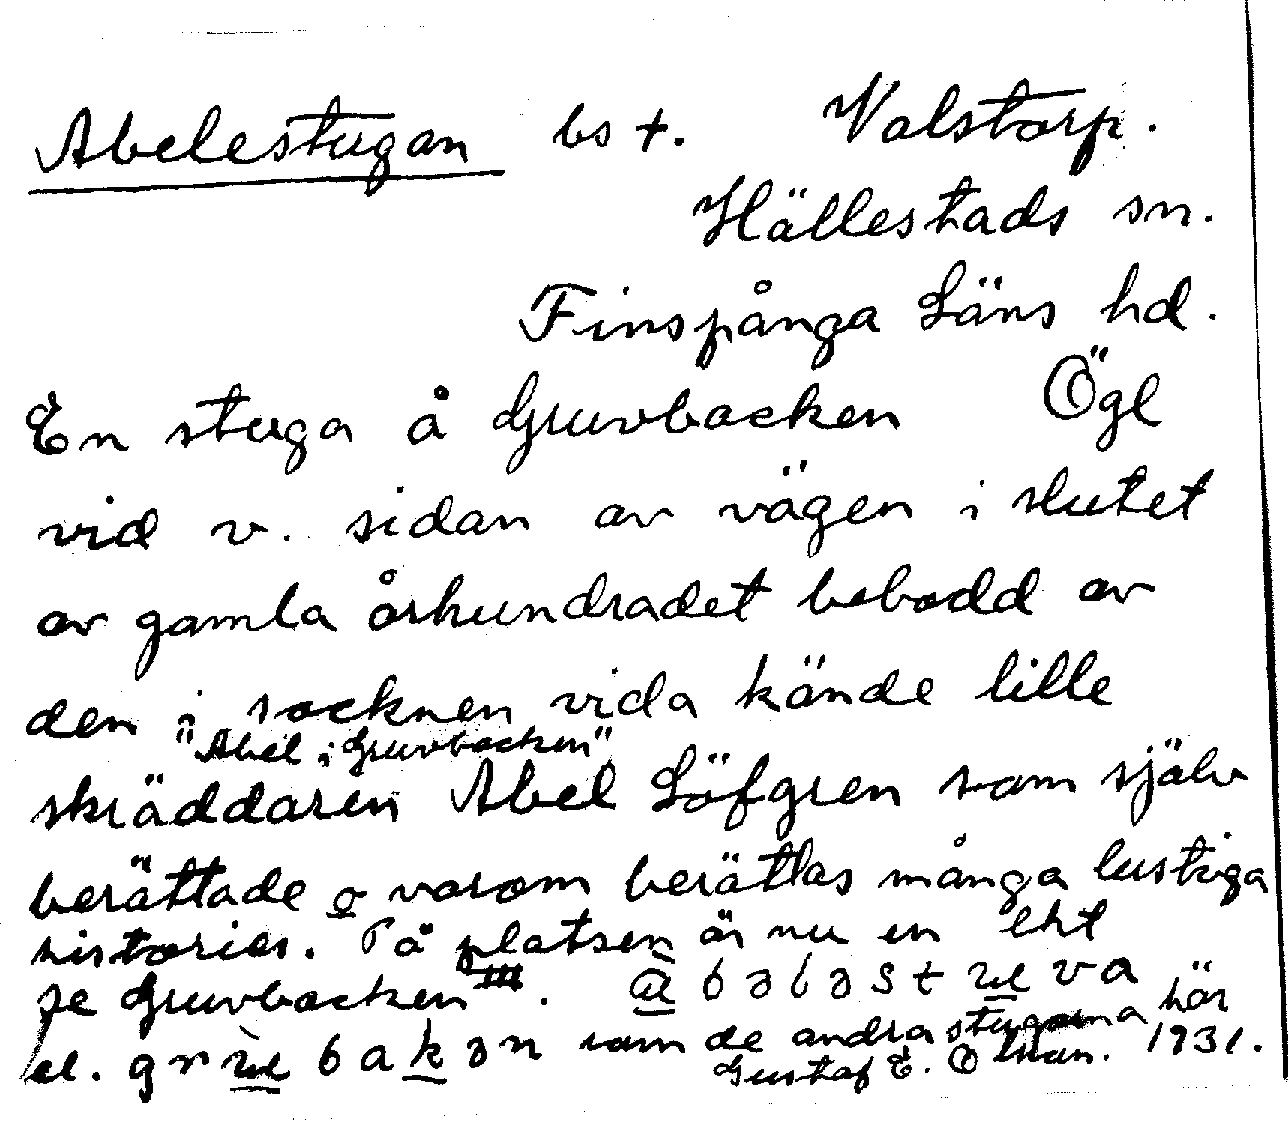 Abelestugan bst. Valstorp.
Hällestads sn.
Finspånga Läns hd.
En stuga å Gruvbacken Ögl
vid v. sidan av vägen i slutet
av gamla århundradet bebodd av
den i socknen vida kände lille
"Abel i Gruvbacken"
skräddaren Abel Löfgren som själv
berättade o varom berättas många lustiga
historier. På platsen är nu en lht
se Gruvbacken III.
el. som de andra stugorna här
Gustaf E. Olsson. 1931.